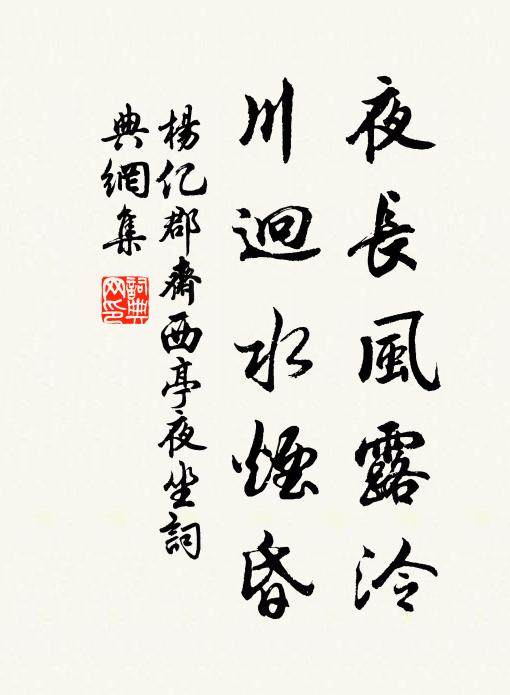 夜長風露泠
川迥水煙昏
楊億郡齋西亭夜坐詞
典網集
詞典網印